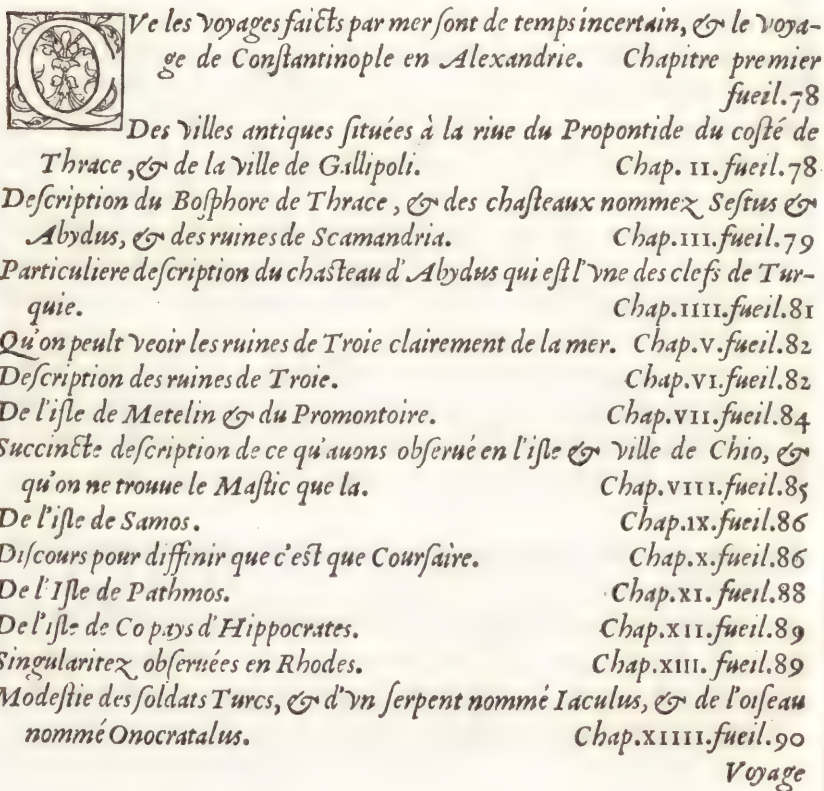 QVe les voyages faicts par mer sont de temps incertain, & le voya-
ge de Constantinople en Alexandrie. Chapitre premier
fueil.78
Des villes antiques situées à la riue du Propontide du costé de
Thrace, & de la ville de Gallipoli. Chap. II. fueil.78
Description du Bosphore de Thrace, & des chasteaux nommez Sestus &
Abydus, & des ruines de Scamandria. Chap. III. fueil.79
Particuliere description du chasteau d'Abydus qui est l'vne des clefs de Tur-
quie. Chap. IIII. fueil.81
Qu'on peult veoir les ruines de Troie clairement de la mer. Chap. V. fueil.82
Description des ruines de Troie. Chap. VI. fueil.82
De l'isle de Metelin & du Promontoire. Chap. VII. fueil.84
Succincte description de ce qu'auons obserué en l'isle & ville de Chio, &
qu'on ne trouue le Mastic que la. Chap. VIII. fueil.85
De l'isle de Samos. Chap. IX. fueil.86
Discours pour diffinir que c'est que Coursaire. Chap. X. fueil.86
De l'Isle de Pathmos. Chap. XI. fueil.88
De l'isle de Co pays d'Hippocrates. Chap. XII. fueil.89
Singularitez obseruées en Rhodes. Chap. XIII. fueil.89
Modestie des soldats Turcs, & d'vn serpent nommé Iaculus, & de l'oiseau
nommé Onocratalus. Chap. XIIII. fueil.90
Voyage